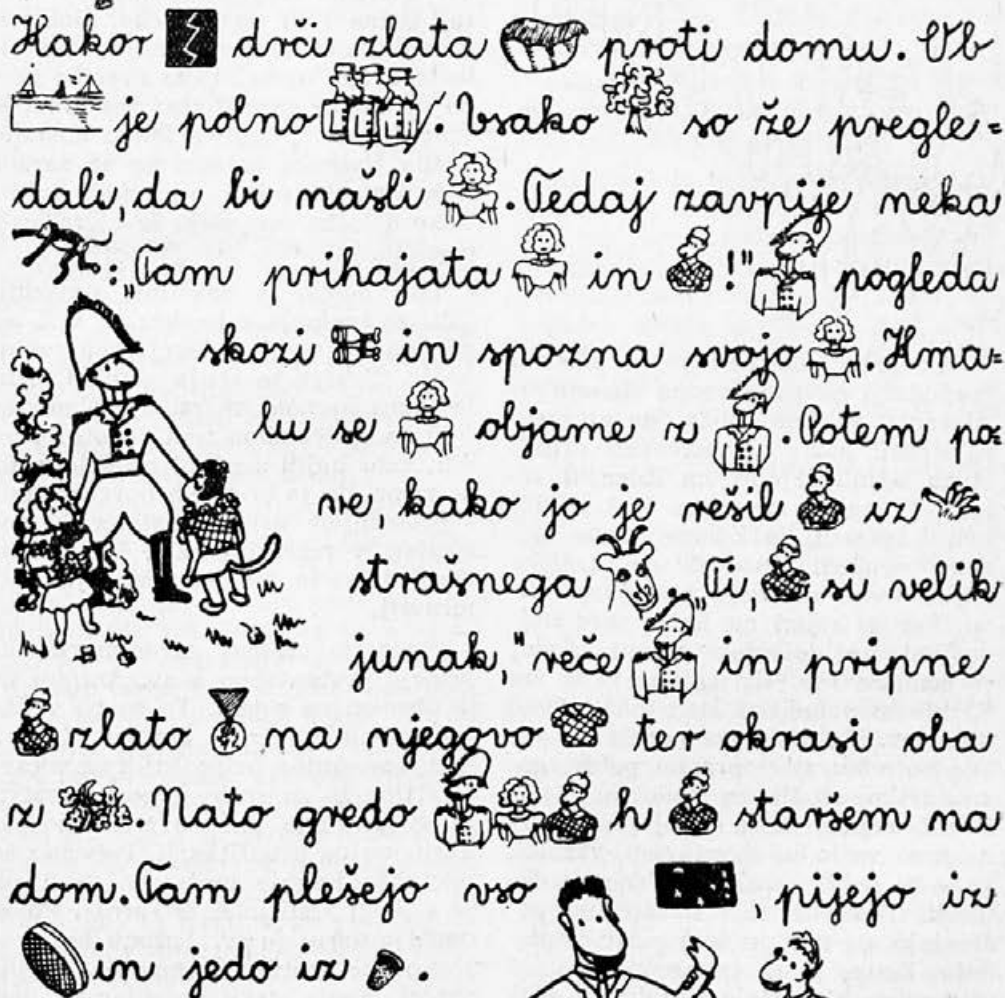 Kakor drči zlata proti domu. Ob
je polno . Vsako so že pregle=
dali, da bi našli . Tedaj zavpije neka
: "Tam prihajata in !" pogleda
skozi in spozna svojo . Kma=
lu se objame z . Potem po=
ve, kako jo je rešil iz
strašnega . "Ti, , si velik
junak," reče in pripne
zlato na njegovo ter okrasi oba
z . Nato gredo h staršem na
dom. Tam plešejo vso , pijejo iz
in jedo iz .